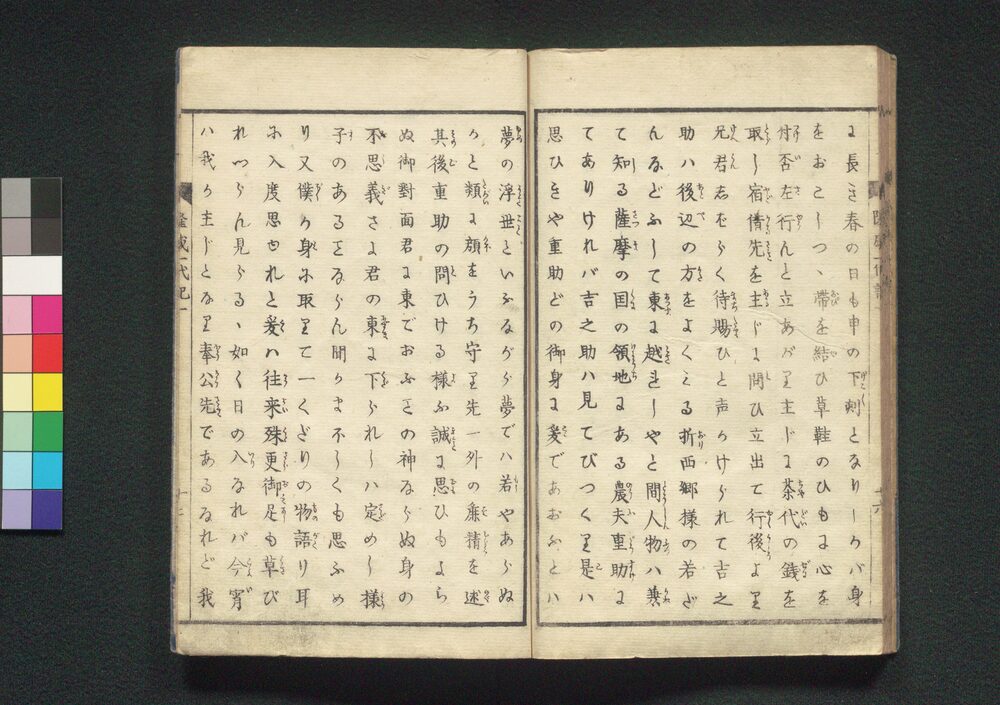 に長き春の日も申の下刻となりしかバ身
をおこしつゝ帯を結ひ草鞋のひもに心を
付否左行んと立あがり主じに茶代の銭を
取し宿借先を主じに問ひ立出て行後より
兄君志ばらく待賜ひと声かけられて吉之
助ハ後辺の方をよくみる折西郷様の若ざ
んなどふして東に越玉しやと問人物ハ兼
て知る薩摩の国の領地にある農夫重助に
てありけれバ吉之助ハ見てびつくり是ハ
思ひきや重助どの御身に爰であおふとハ
夢の浮世といふながら夢でハ若やあらぬ
かと類に顔をうち守り先一外の無精を述
其後重助の問ひける様ふ誠に思ひもよら
ぬ御對面君に東でおふこの神ならぬ身の
不思義さよ君の東に下られしハ定めし様
子のあることならん聞かま不しくも思ふめ
り又僕か身に取りて一くだりの物語り耳
に入度思やれと爰ハ往来殊更御足も草び
れつらん見らるゝ如く日の入なれバ今宵
ハ我か主じとなり奉公先であるなれど我
隆盛一代記一